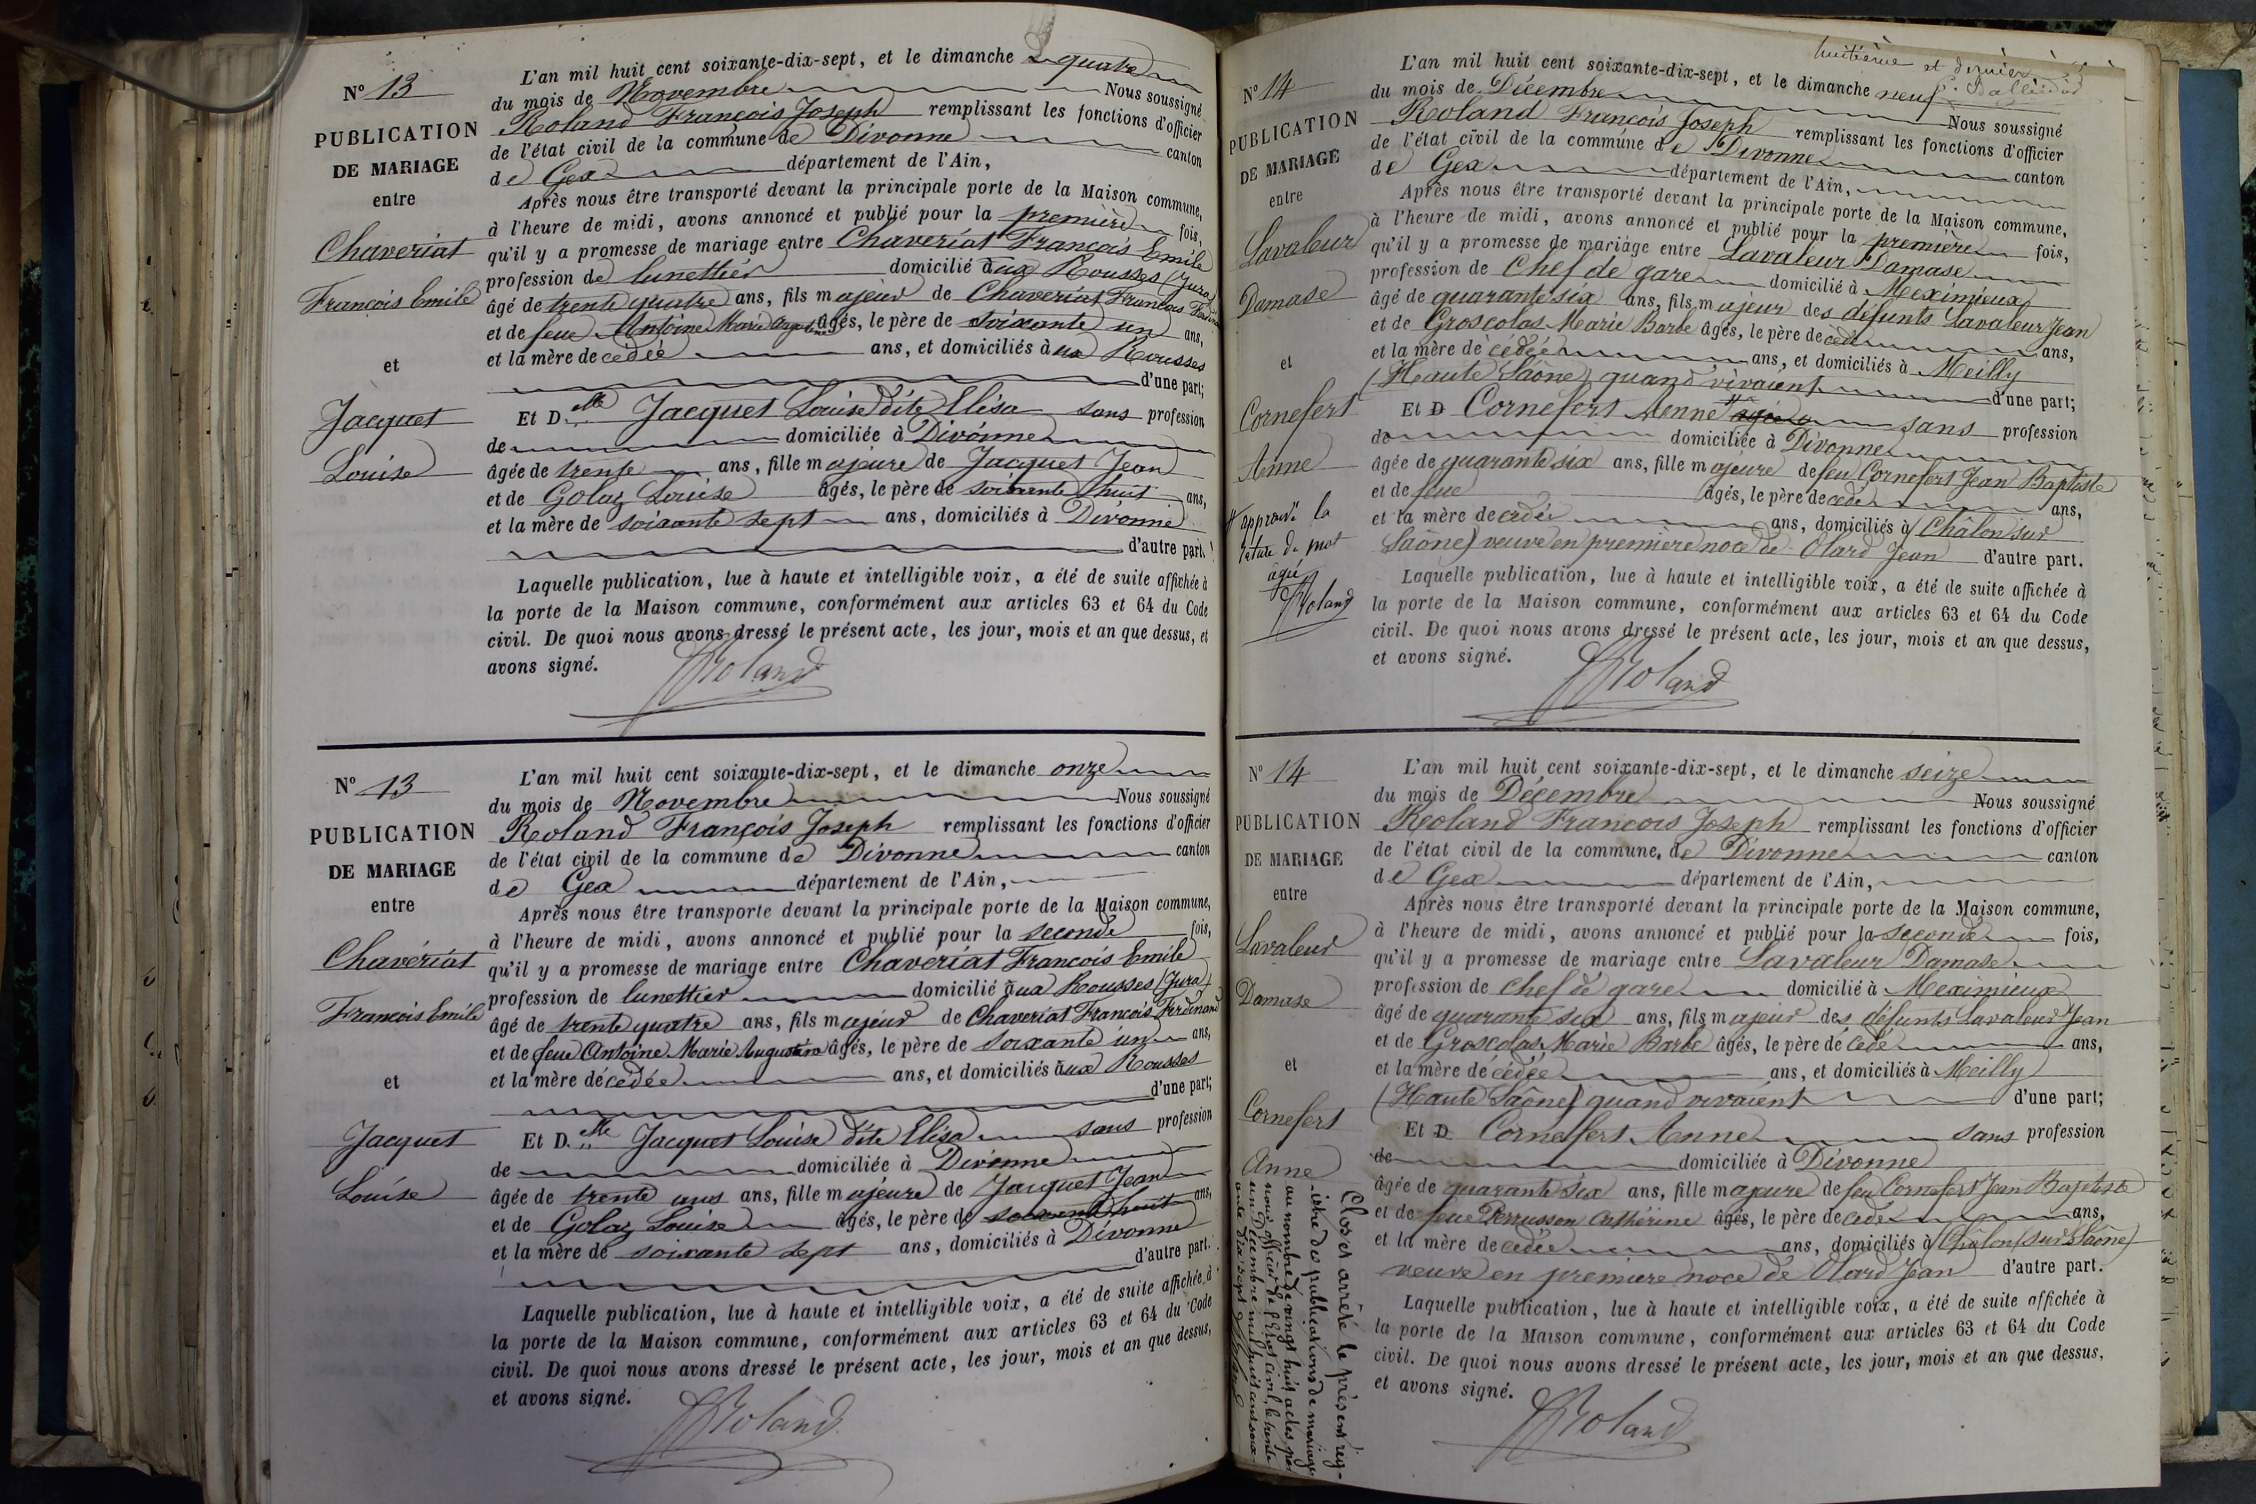 N° 13
PUBLICATION
DE MARIAGE
entre
Chaveriat
François Emile
et
Jacquet
Louise
L'an mil huit cent soixante-dix-sept, et le dimanche quatre
du mois de Novembre Nous soussigné
Roland François Joseph remplissant les fonctions d'officier
de l'état civil de la commune de Divonne canton
de Gex département de l'Ain,
Après nous être transporté devant la principale porte de la Maison commune,
à l'heure de midi, avons annoncé et publié pour la première fois,
qu'il y a promesse de mariage entre Chaveriat François Emile
profession de lunettier domicilié aux Rousses (Jura)
âgé de trente quatre ans, fils majeur de Chaveriat François
et de feue Antoine Marie âgés, le père de soixante un ans,
et la mère decédée ans, et domiciliés aux Rousses
d'une part;
Et D.elle Jacquet Louise dite Elisa sans profession
de domiciliée à Divonne
âgée de trente ans, fille majeure de Jacquet Jean
et de Golaz Louise âgés, le père de soixante huit ans,
et la mère de soixante sept ans, domiciliés à Divonne
d'autre part.
Laquelle publication, lue à haute et intelligible voix, a été de suite affichée à
la porte de la Maison commune, conformément aux articles 63 et 64 du Code
civil. De quoi nous avons dressé le présent acte, les jour, mois et an que dessus, et
avons signé.
Roland
N° 13
PUBLICATION
DE MARIAGE
entre
Chavériat
François Emile
et
Jacquet
Louise
L'an mil huit cent soixante-dix-sept, et le dimanche onze
du mois de Novembre Nous soussigné
Roland François Joseph remplissant les fonctions d'officier
de l'état civil de la commune de Divonne canton
de Gex département de l'Ain,
Après nous être transporté devant la principale porte de la Maison commune,
à l'heure de midi, avons annoncé et publié pour la seconde fois,
qu'il y a promesse de mariage entre Chaveriat François Emile
profession de lunettier domicilié aux Rousses (Jura)
âgé de trente quatre ans, fils majeur de Chaveriat François Ferdinand
et de feue Antoine Marie Augustine âgés, le père de soixante un ans,
et la mère décédée ans, et domiciliés aux Rousses
d'une part;
Et D.elle Jacquet Louise dite Elisa sans profession
de domiciliée à Divonne
âgée de trente ans ans, fille majeure de Jacquet Jean
et de Golaz Louise âgés, le père de soixante huit ans,
et la mère de soixante sept ans, domiciliés à Divonne
d'autre part.
Laquelle publication, lue à haute et intelligible voix, a été de suite affichée à
la porte de la Maison commune, conformément aux articles 63 et 64 du Code
civil. De quoi nous avons dressé le présent acte, les jour, mois et an que dessus,
et avons signé.
Roland
huitième et dernier
N° 14
PUBLICATION
DE MARIAGE
entre
Lavaleur
Damase
et
Cornefert
Anne
# approuvé la
rature du mot
agée
Roland
L'an mil huit cent soixante-dix-sept, et le dimanche neuf
du mois de Décembre Nous soussigné
Roland François Joseph remplissant les fonctions d'officier
de l'état civil de la commune de Divonne canton
de Gex département de l'Ain,
Après nous être transporté devant la principale porte de la Maison commune,
à l'heure de midi, avons annoncé et publié pour la première fois,
qu'il y a promesse de mariage entre Lavaleur Damase
profession de Chef de gare domicilié à Meximieux
âgé de quarante six ans, fils majeur des défunts Lavaleur Jean
et de Groscolas Marie Barbe âgés, le père de céde ans,
et la mère de cédée ans, et domiciliés à Meilly
(Haute Saône) quand vivaient d'une part;
Et D Cornefert Anne # agée sans profession
de domiciliée à Divonne
âgée de quarante six ans, fille majeure de feu Cornefert Jean Baptiste
et de feue âgés, le père decédé ans,
et la mère decedée ans, domiciliés à Châlon (sur
Saône) veuve en première noce de Olard Jean d'autre part.
Laquelle publication, lue à haute et intelligible voix, a été de suite affichée à
la porte de la Maison commune, conformément aux articles 63 et 64 du Code
civil. De quoi nous avons dressé le présent acte, les jour, mois et an que dessus,
et avons signé.
Roland
N° 14
PUBLICATION
DE MARIAGE
entre
Lavaleur
Damase
et
Cornefert
Anne
L'an mil huit cent soixante-dix-sept, et le dimanche seize
du mois de Décembre Nous soussigné
Roland François Joseph remplissant les fonctions d'officier
de l'état civil de la commune, de Divonne canton
de Gex département de l'Ain,
Après nous être transporté devant la principale porte de la Maison commune,
à l'heure de midi, avons annoncé et publié pour la seconde fois,
qu'il y a promesse de mariage entre Lavaleur Damase
profession de Chef de gare domicilié à Meximieux
âgé de quarante six ans, fils majeur des défunts Lavaleur Jean
et de Groscolas Marie Barbe âgés, le père de cede ans,
et la mère de cédée ans, et domiciliés à Meilly
(Haute Saône) quand vivaient d'une part;
Et D Cornefert Anne sans profession
de domiciliée à Divonne
âgée de quarante six ans, fille majeure de feu Cornefert Jean Baptiste
et de feue Perrusson Cathérine âgés, le père decedé ans,
et la mère decédée ans, domiciliés à Chalon (sur Saône)
veuve en première noce de Olard Jean d'autre part.
Laquelle publication, lue à haute et intelligible voix, a été de suite affichée à
la porte de la Maison commune, conformément aux articles 63 et 64 du Code
civil. De quoi nous avons dressé le présent acte, les jour, mois et an que dessus,
et avons signé.
Roland
Clos et arrêté le présent rég-
-istre des publications de mariage
au nombre de vingt huit actes par
nous officier de l'état civil, le trente
un Décembre mil huit cent soix-
ante dix sept